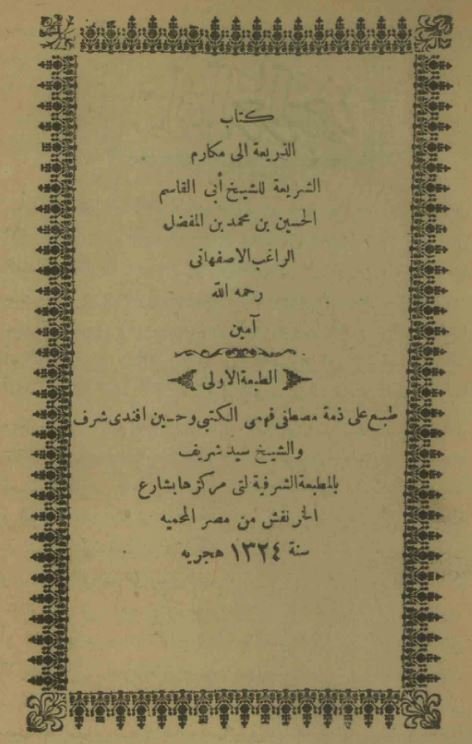 كتاب
الذريعة الى مكارم
الشريعة للشيخ أبى القاسم
الحسين بن محمد بن المفضل
الراغب الاصفهانى
رحمه الله
آمين
الطبعة الاولى
طبع على ذمة مصطفى فهمى الكتبي وحسين افندى شرف
والشيخ سيد شريف
بالمطبعة الشرفية لتى مركزها بشارع
الخرنفش من مصر المحميه
سنة ١٣٢٤ هجريه